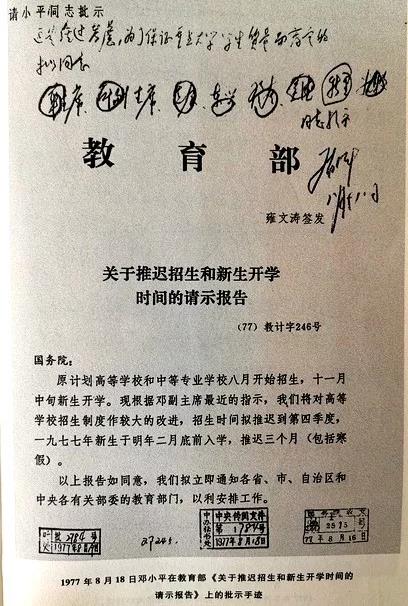 请小平同志批示
这是经过考虑，为了保证重点大学学生质量而商定的
拟同意
同志批示
教 育 部
雍文涛签发
关于推迟招生和新生开学
时间的请示报告
（77）教计字246号
国务院：
原计划高等学校和中等专业学校八月开始招生，十一月
中旬新生开学。现根据邓副主席最近的指示，我们将对高等
学校招生制度作较大的改进，招生时间拟推迟到第四季度，
一九七七年新生于明年二月底前入学，推迟三个月（包括寒
假）。
以上报告如同意，我们拟立即通知各省、市、自治区和
中央各有关部委的教育部门，以利安排工作。
中央传阅文件
第1784号
1977年8月18日
1977年8月18日邓小平在教育部《关于推迟招生和新生开学时间的
请示报告》上的批示手迹